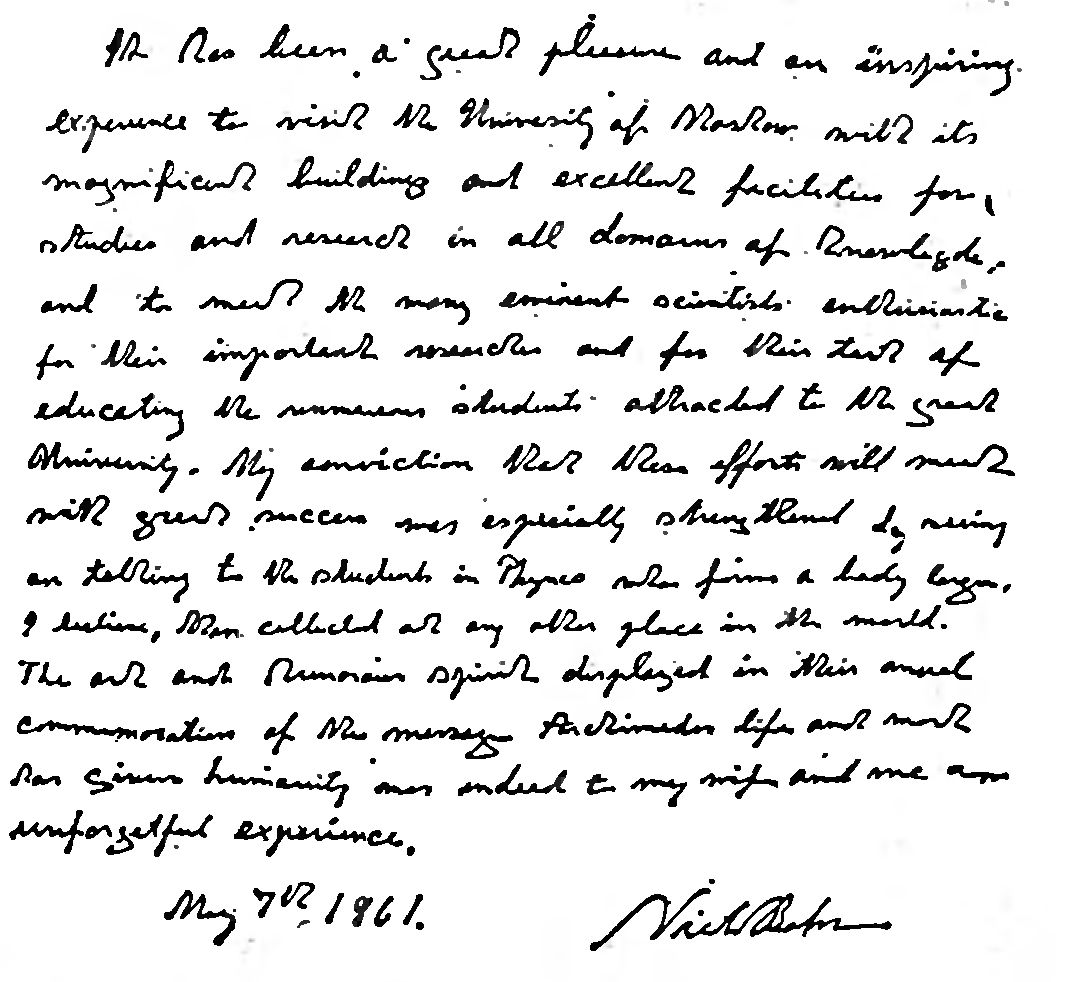 It has been a great pleasure and an inspiring
experience to visit the University of Moskow with its
magnificent buildings and excellent facilities for
studies and research in all domains of knowlegde,
and to meet the many eminent scientists enthusiastic
for their important researches and for their task of
educating the numerous students attracted to the great
University. My conviction that these efforts will meet
with great success was especially strengthened by seeing
an talking to the students in Physics who forms a body larger,
I believe, than collected at any other place in the world.
The art and humorous spirit displayed in their annual
commemoration of the message Archimedes life and work
has given humanity was indeed to my wife and me an
unforgetful experience.
May 7th 1961.
Niels Bohr